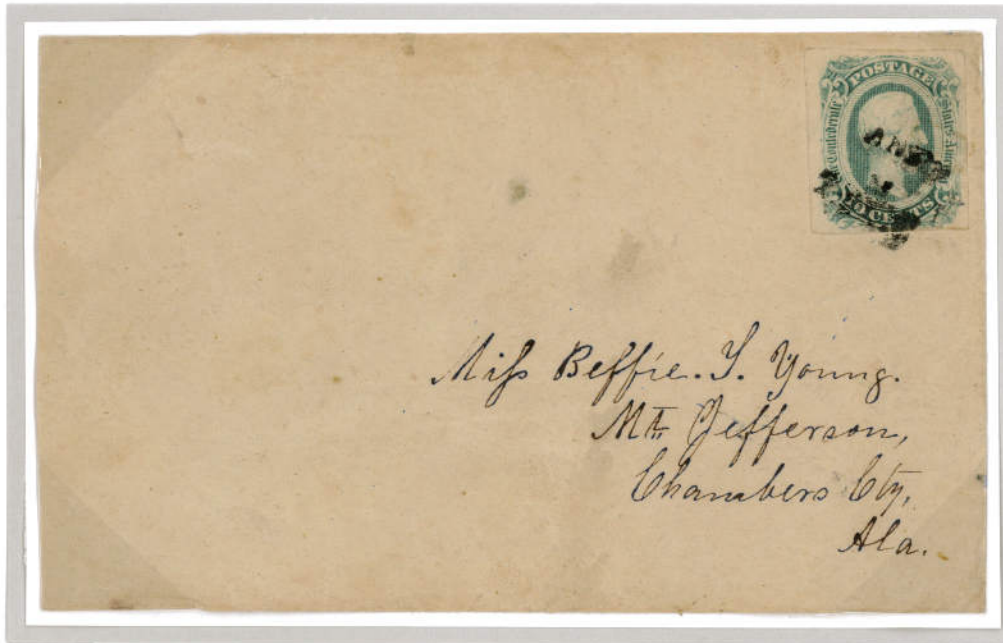 POSTAGE
The Confederate States America
10 CENTS
Miſs Beffie. T. Young.
Mt. Jefferson,
Chambers Cty,
Ala.